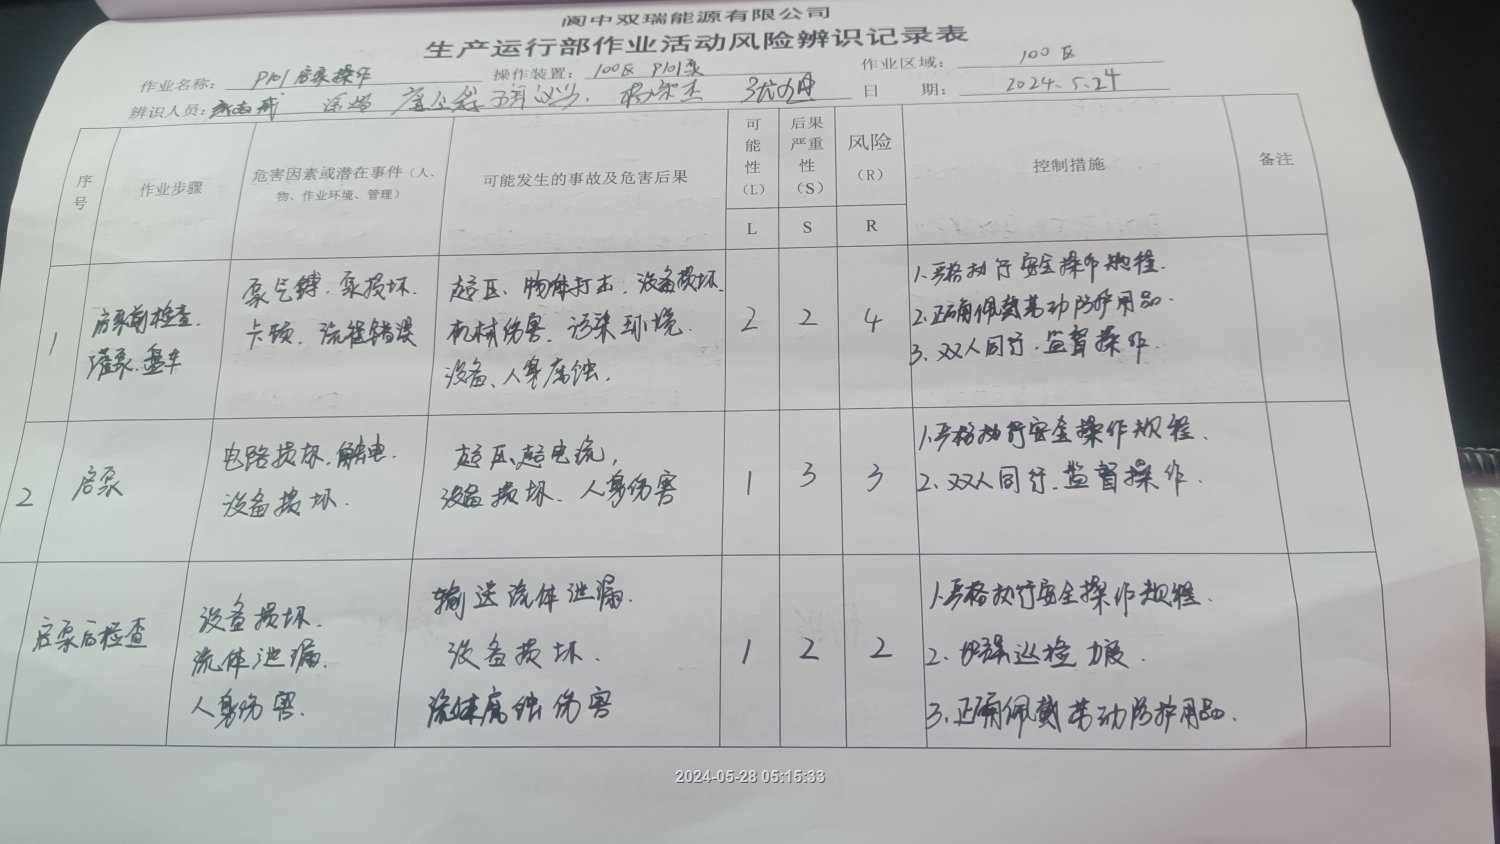 阆中双瑞能源有限公司
生产运行部作业活动风险辨识记录表
作业名称： P101启泵操作 操作装置： 100区 P101泵 作业区域： 100区
辨识人员： 日 期： 2024.5.24
序号 作业步骤 危害因素或潜在事件（人、物、作业环境、管理） 可能发生的事故及危害后果 可能性（L） 后果严重性（S） 风险（R） 控制措施 备注
L S R
1 启泵前检查. 灌泵.盘车 泵气缚.泵损坏. 卡顿.流程错误 超压、物体打击.设备损坏. 机械伤害.污染环境. 设备、人身腐蚀. 2 2 4 1.严格执行安全操作规程.
2.正确佩戴劳动防护用品.
3.双人同行.监督操作.
2 启泵 电路损坏.触电. 设备损坏. 超压、超电流, 设备损坏.人身伤害 1 3 3 1.严格执行安全操作规程.
2.双人同行.监督操作.
启泵后检查 设备损坏. 流体泄漏. 人身伤害. 输送流体泄漏. 设备损坏. 流体腐蚀伤害 1 2 2 1.严格执行安全操作规程.
2.加强巡检力度.
3.正确佩戴劳动防护用品.
2024-05-28 05:15:33